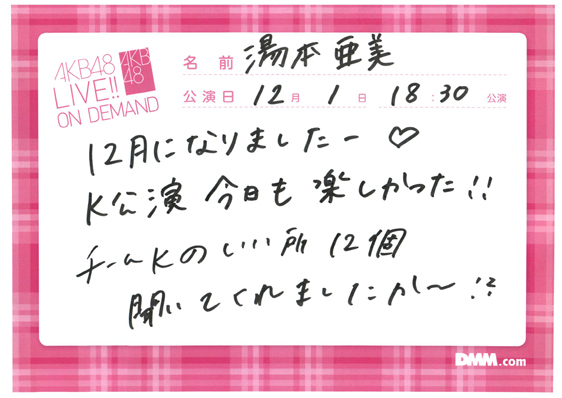 AKB48
LIVE!!
ON DEMAND
AKB
48
名前 湯本亜美
公演日 12月 1日 18:30 公演
12月になりましたー♡
K公演 今日も楽しかった!!
チームKのいい所12個
聞いてくれましたか〜!?
DMM.com